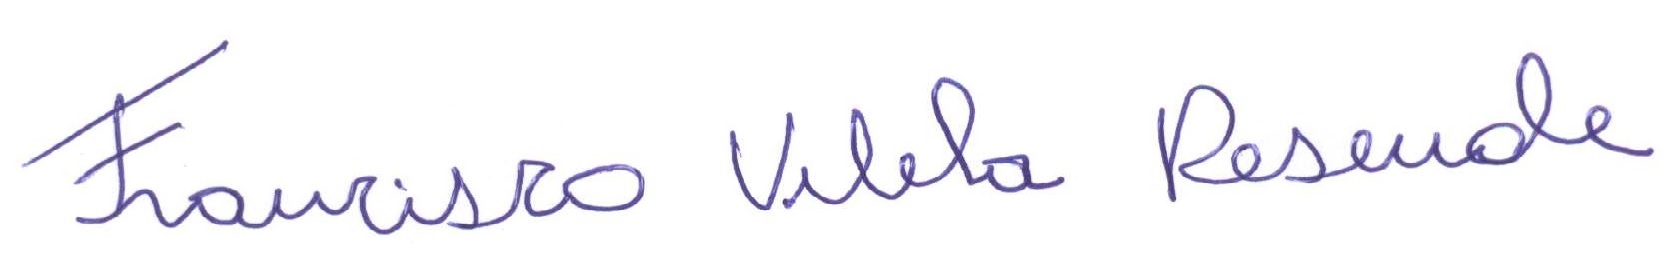 Francisco Vilela Resende